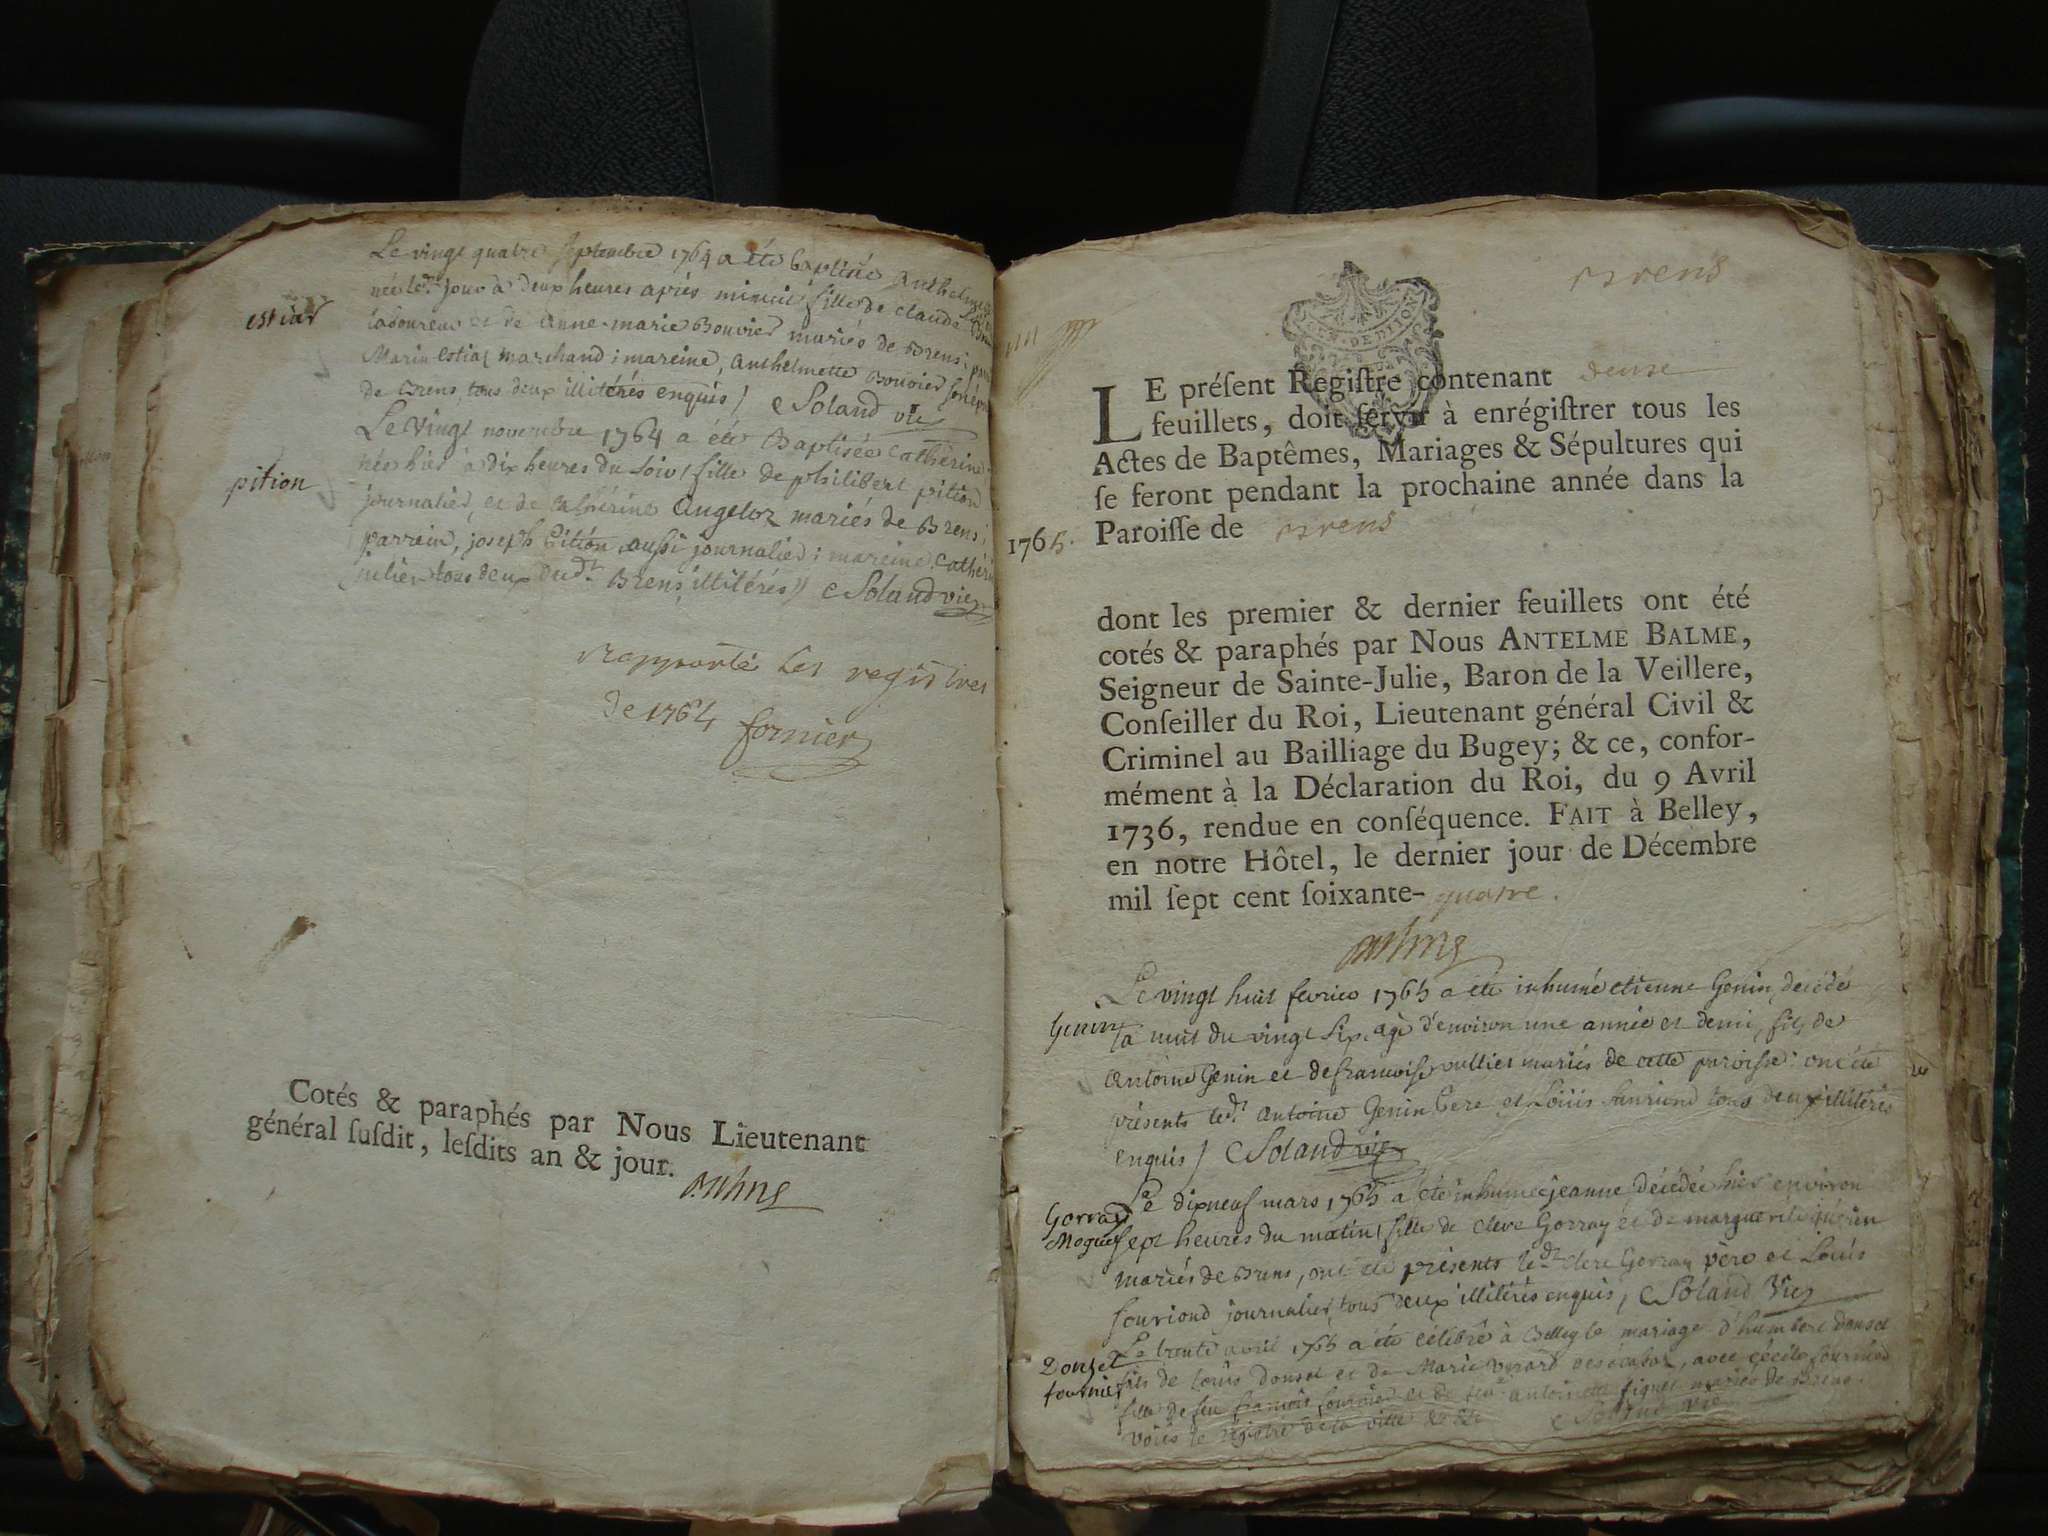 Le vingt quatre septembre 1764 a été baptisée anthelmette
née led.t jour à deux heures après minuit fille de claude
estiar
laboureur et de anne-marie Bouvier mariés de Brens;
Marin estiar marchand; mareine, anthelmette Bouvier
de Brens, tous deux illitérés enquis / Soland vic
Le vingt novembre 1764 a été Baptisée catherine
pition
née hier à dix heures du soir, fille de philibert pition
journalier, et de catherine Angeloz mariés de Brens;
parrein, joseph Pition, aussi journalier; mareine, Catherine
tous deux dud.t Brens, illitérés // Soland vic
rapporté les registres
de 1764 fornier
Cotés & paraphés par Nous Lieutenant
général ſuſdit, leſdits an & jour.
Brens
GEN. DE DIJON
LE préſent Regiſtre contenant douze
feuillets, doit ſervir à enrégiſtrer tous les
Actes de Baptêmes, Mariages & Sépultures qui
ſe feront pendant la prochaine année dans la
1765. Paroiſſe de Brens
dont les premier & dernier feuillets ont été
cotés & paraphés par Nous ANTELME BALME,
Seigneur de Sainte-Julie, Baron de la Veillere,
Conſeiller du Roi, Lieutenant général Civil &
Criminel au Bailliage du Bugey; & ce, confor-
mément à la Déclaration du Roi, du 9 Avril
1736, rendue en conſéquence. FAIT à Belley,
en notre Hôtel, le dernier jour de Décembre
mil ſept cent ſoixante-quatre.
Le vingt huit fevrier 1765 a été inhumé etienne Genin, décédé
Genin
la nuit du vingt six, agé d'environ une année et demi, fils de
antoine Genin et de francoise vullier mariés de cette paroisse: ont été
présents led.t antoine Genin Pere et Loüis fauriond tous deux illitérés
enquis / Soland vic
Le dixneuf mars 1765 a été inhumée jeanne, décédée hier environ
Gorray
Moguet
sept heures du matin, fille de clere Gorray et de marguerite
mariés de Brens, ont été présents led.t clere Gorray père et Loüis
fauriond journalier, tous deux illitérés enquis, Soland Vic
Le trente avril 1765 a été célébré à Belley le mariage d'humbert donset
Donzet
fournier
fils de Loüis donset et de Marie verard, avec cécile fournier
fille de feu francois fournier et de antoinette figuet mariés de Brens.
voiés le régistre de la ville Soland vic